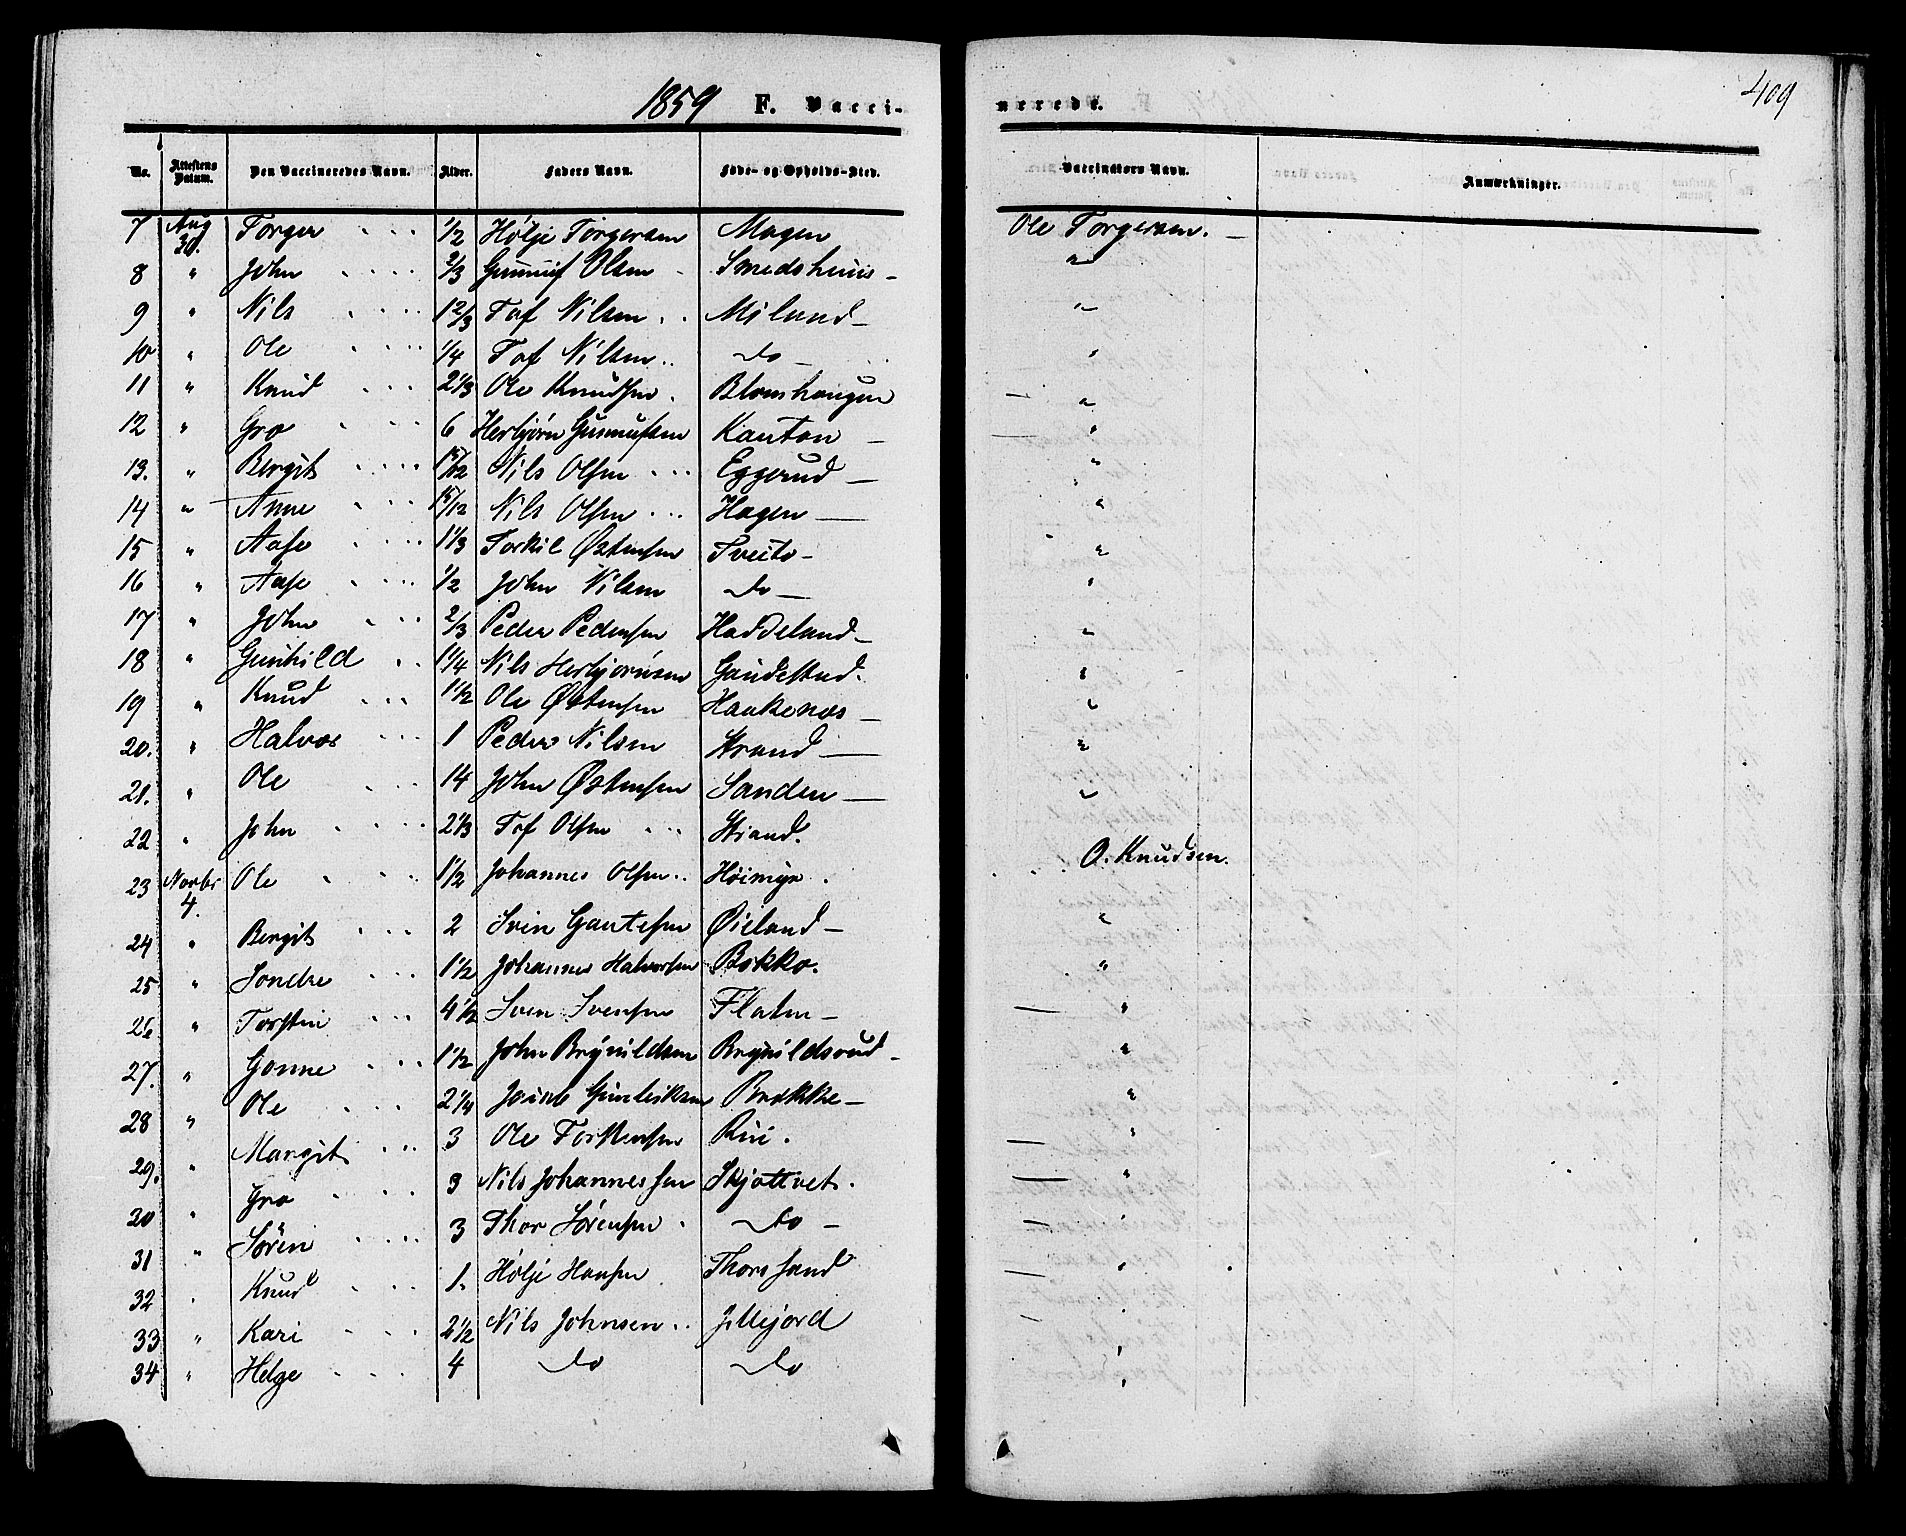 1859 F. Vacci-
nerede.
409
No. Attestens Datum. Den Vaccineredes Navn. Alder. Faders Navn. Føde- og Opholds-Sted. Vaccinators Navn. Anmærkninger.
7 Aug 30. Torger 1/2 Hølje Torgersen Mogen Ole Torgersen.
8 " John 2/3 Gunnuf Olsen Smedshuus "
9 " Nils 1 2/3 Tof Nilsen Miland "
10 " Ole 1/4 Tof Nilsen do "
11 " Knud 2 1/3 Ole Knudsen Blomhougen "
12 " Gro 6 Herbjørn Gunnufsen Kanton "
13. " Bergit Nils Olsen Eggerud "
14 " Anne Nils Olsen Hagen "
15 " Aase 1 1/3 Torkil Østensen Tveito "
16 " Aase 1/2 John Nilsen do "
17 " John 2/3 Peder Pedersen Haddeland "
18 " Gunhild 1 1/4 Nils Herbjørnsen Gaudestad. "
19 " Knud 1 1/2 Ole Østensen Haakenæs "
20. " Halvor 1 Peder Nilsen Strand "
21. " Ole 14 John Østensen Sanden "
22 " John 2 1/3 Tof Olsen Strand.
23 Novbr 4. Ole 1 1/2 Johannes Olsen Høimyr. O. Knudsen.
24 " Bergit 2 Svin Gautesen Øieland "
25 " Sondre 1 1/2 Johannes Halvorsen Bokko. "
26 " Torstin 4 1/2 Sven Svensen Flaten "
27. " Gonne 1 1/2 John Brynildsen Brynildsrud "
28 " Ole 2 1/4 Gunleiksen Brekke "
29. " Margit 3 Ole Torstensen Rui. "
30 " Gro 3 Nils Johannessen Skjøttvet. "
31 " Søren 3 Thor Sørensen do "
32 " Knud 1. Hølje Hansen Thorssand "
33 " Kari 2 1/2 Nils Johnsen "
34 " Helge 4 do do "